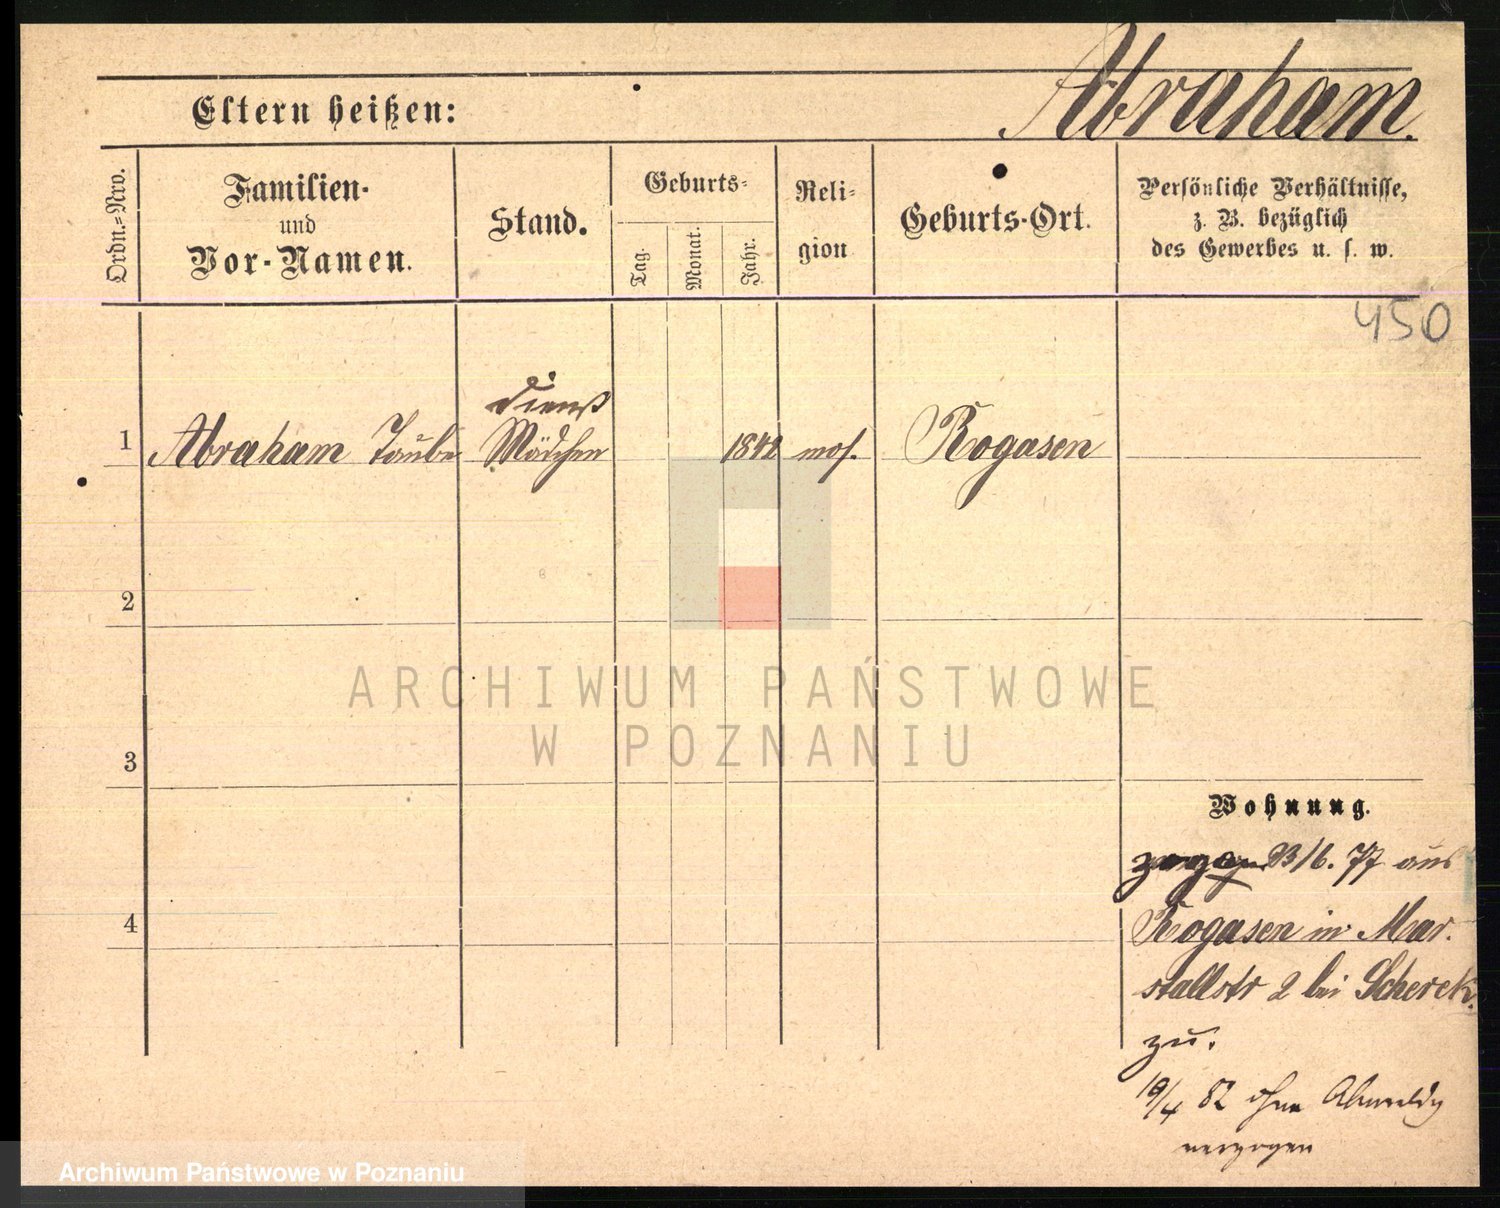 Abraham.
Eltern heißen:
Ordn.=Nro.
Familien-
und
Vor-Namen.
Stand.
Geburts=
Tag.
Monat.
Jahr.
Reli-
gion
Geburts-Ort.
Persönliche Verhältnisse,
z. B. bezüglich
des Gewerbes u. s. w.
450
dienst
1 Abraham Taube Mädchen 1842 mos. Rogasen
2
ARCHIWUM PAŃSTWOWE
W POZNANIU
3
Wohnung.
23/6. 77 aus
4
Rogasen in Mar.
stallstr 2 bei Scherek.
zu.
19/4 82 ohne Abmeldg
verzogen
Archiwum Państwowe w Poznaniu